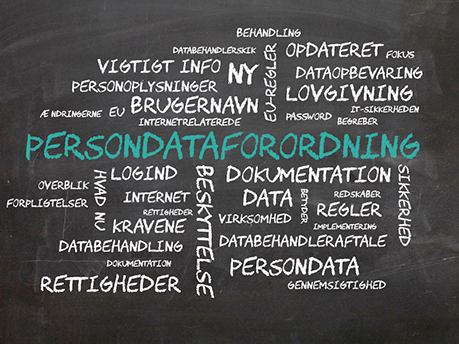 BEHANDLING
DATABEHANDLERSKIK
OPDATERET FOKUS
VIGTIGT INFO NY
EU-REGLER
DATAOPBEVARING
PERSONOPLYSNINGER
LOVGIVNING
BRUGERNAVN
ÆNDRINGERNE EU
IT-SIKKERHEDEN
INTERNETRELATEREDE
PASSWORD BEGREBER
PERSONDATAFORORDNING
LOGIND
DOKUMENTATION
SIKKERHED
OVERBLIK
HVAD NU
INTERNET
BESKYTTELSE
DATA
BETYDER
REDSKABER
FORPLIGTELSER
RETTIGHEDER
REGLER
KRAVENE
VIRKSOMHED
IMPLEMENTERING
DATABEHANDLING
DATABEHANDLERAFTALE
DOKUMENTATION
PERSONDATA
RETTIGHEDER
GENNEMSIGTIGHED